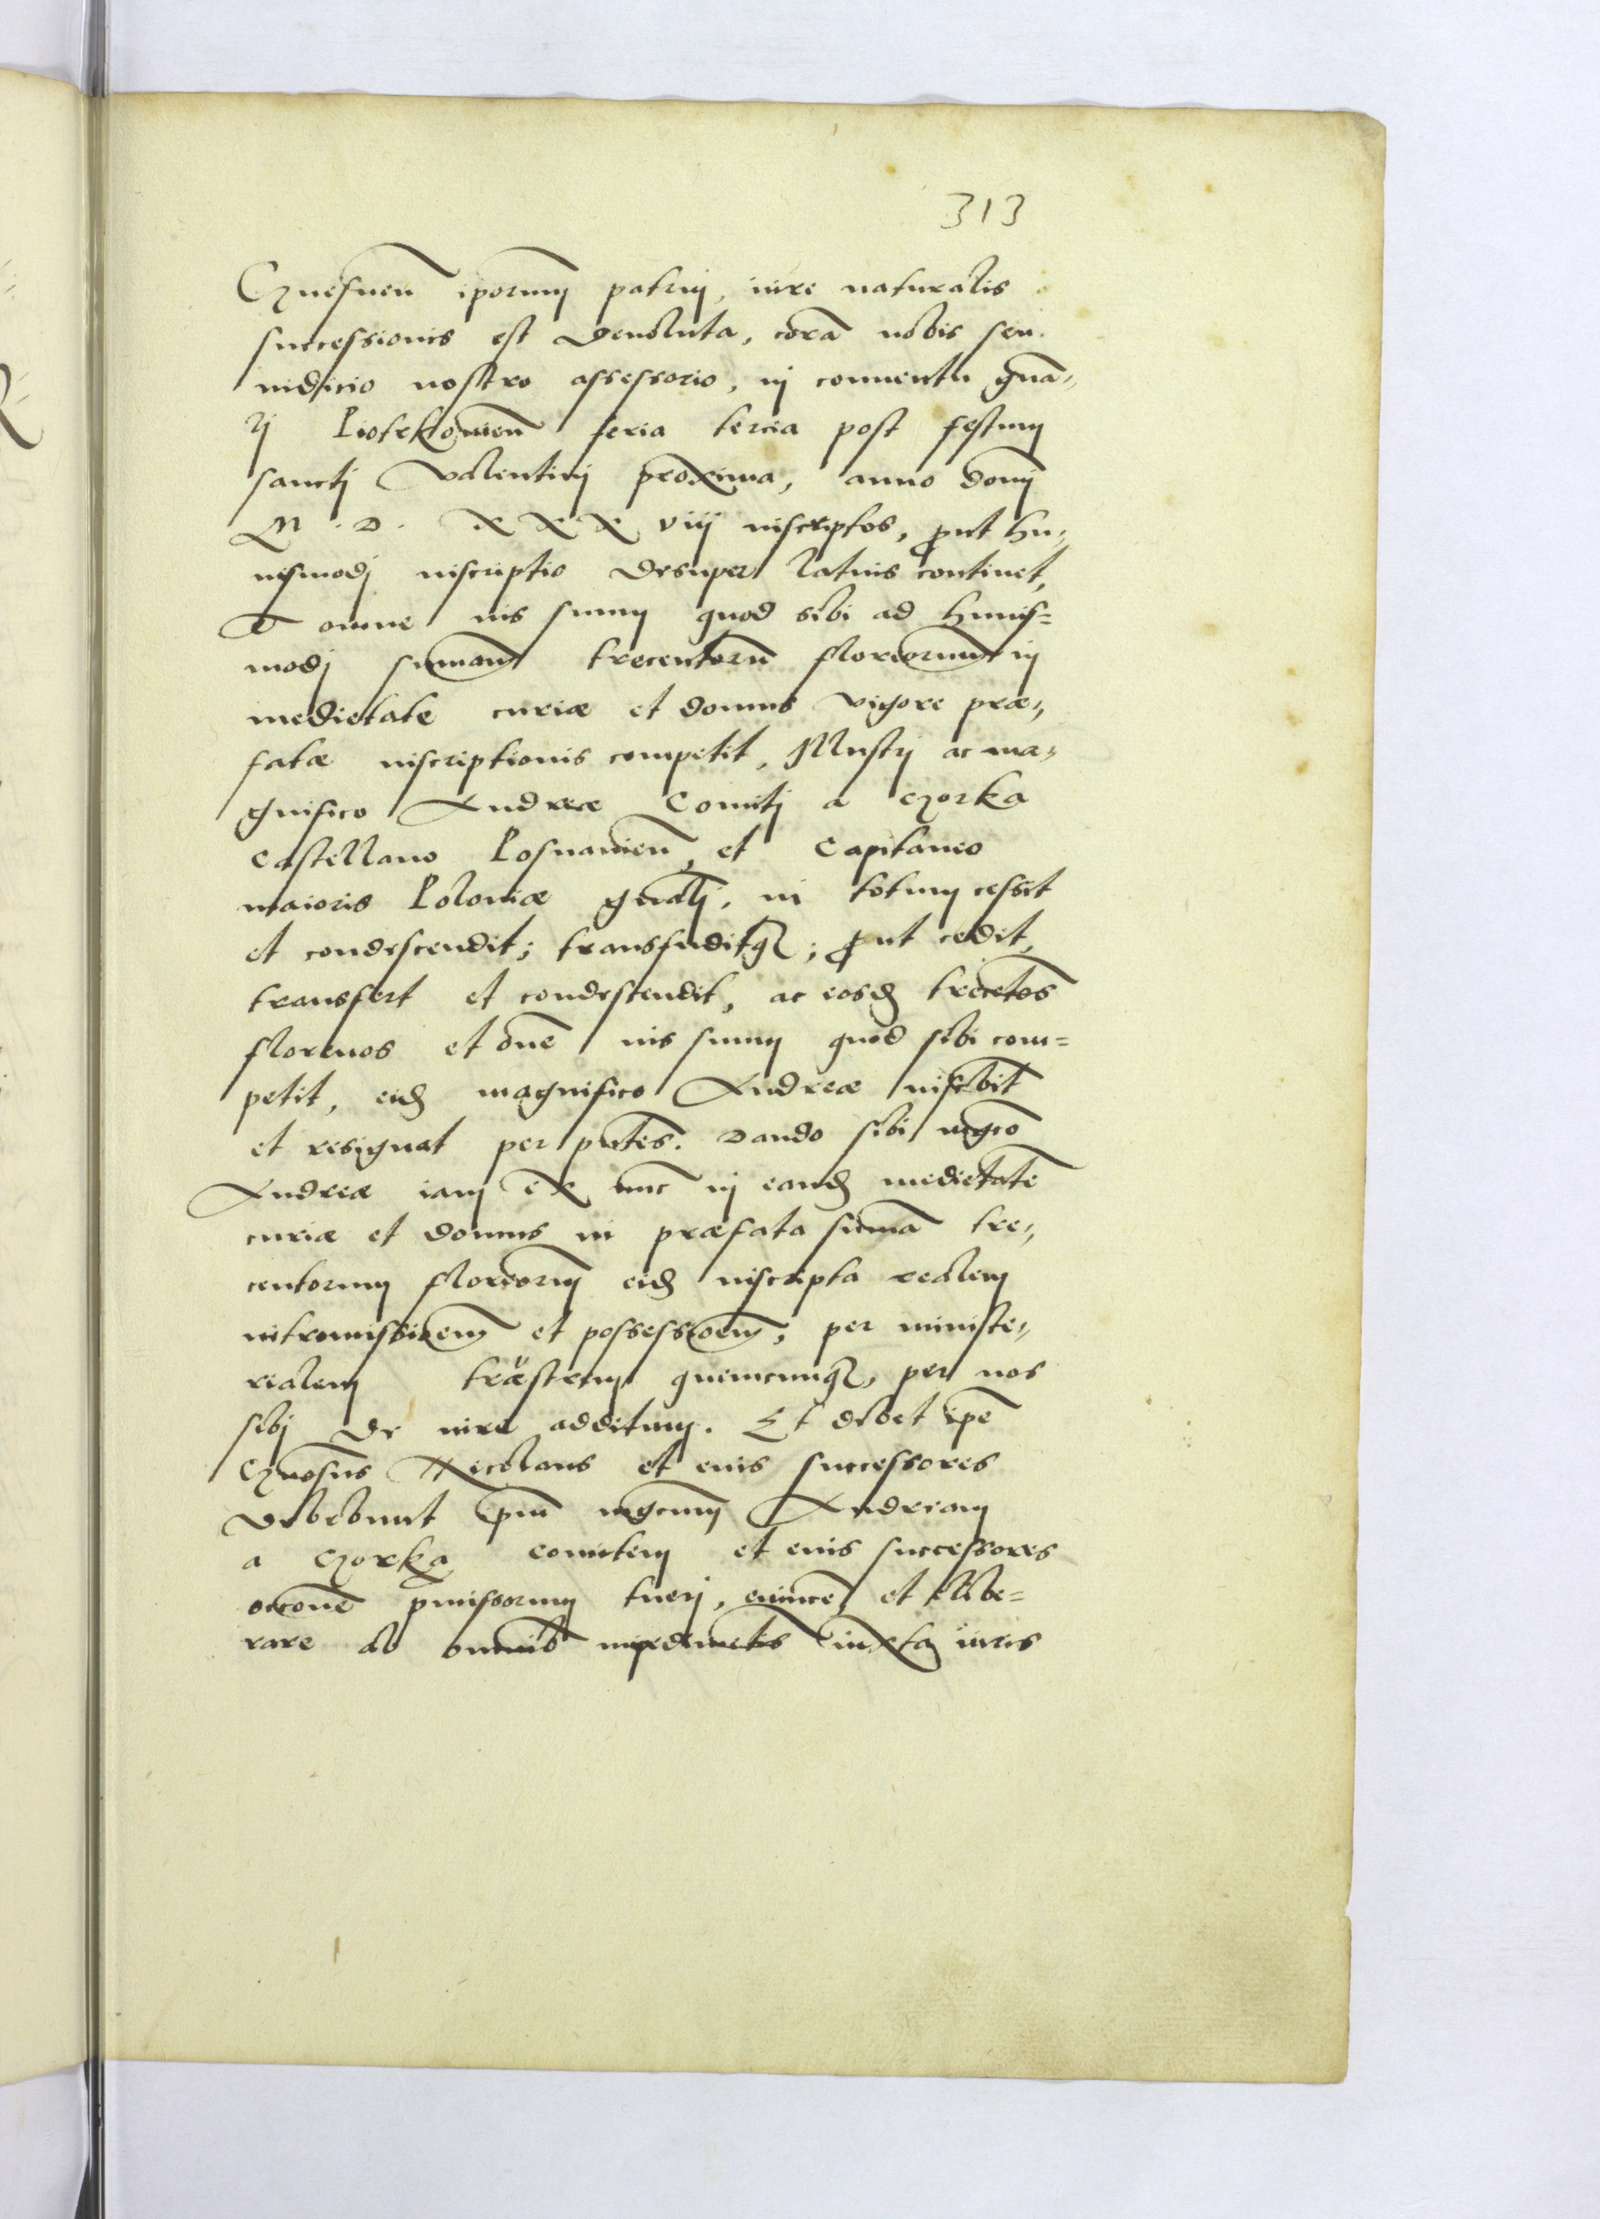 313
Gnesnen̄ ip̄orum patruj, iure naturalis
successionis est deuoluta, corā nobis seu
iudicio nostro assessorio, in conuentu gn̄a„
lj Piotrkouien̄ feria tercia post festum
sanctj Valentinj proxima, anno domj̄
M . D . X X X viij inscriptos, ꝓut hu„
iusmodj inscriptio desuper latius continet,
Et omne ius suum quod sibi ad huius=
modj sum̄am trecentorū floreōrum in
medietate curiæ et domus vigore præ„
fatæ inscriptionis competit, Illustrj ac ma„
gnifico Andreæ Comitj a Gorka
Castellano Posnanien̄, et Capitaneo
maioris Poloniæ gn̄alj, in totum cessit
et condescendit; transfuditqꝫ; ꝓut cedit,
transfert et condescendit, ac eosdꝫ trecētos
florenos et om̄e ius suum quod sibi com=
petit, eidꝫ magnifico Andreæ inscrībit
et resignat per pn̄tes. Dando sibi mgc̄o
Andreæ iam ex nunc in eandꝫ medietatē
curiæ et domus in præfata sum̄a tre„
centorum floreōrum eidꝫ inscripta realem
intromissioēm et possessioēm, per ministe„
rialem terrestrem quemcumqꝫ, per nos
sibj de iure additum. Et debet ip̄e
Gn̄osus Nicolaus et eius successores
debebunt ip̄um mgc̄um Andream
a Gorka comitem et eius successores
occōne p̄missorum tuerj, euincere, et libe=
rare ab omnib̄ impedimētis iuxta iuris